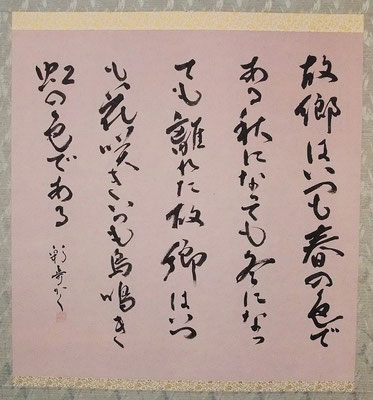 故郷はいつも春の色で
ある秋になっても冬になっ
ても離れた故郷はいつ
も花咲きいつも鳥鳴き
虹の色である